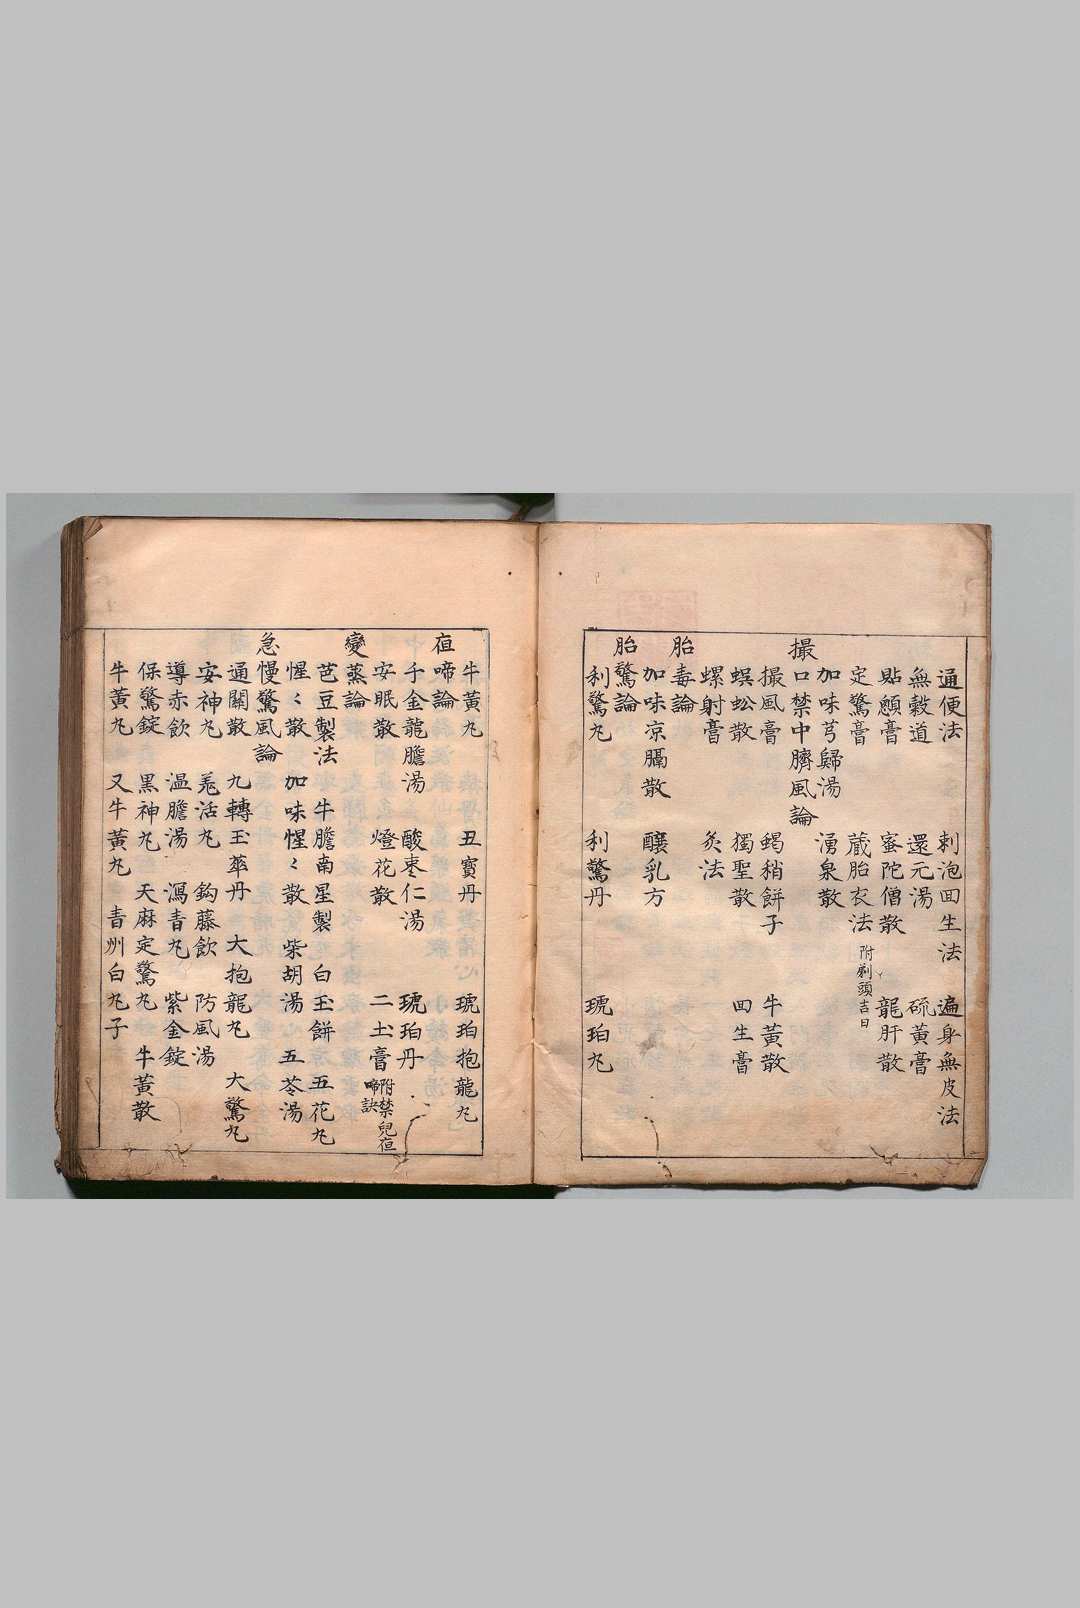 通便法 刺泡回生法 遍身無皮法
無穀道 還元湯 硫黄膏
貼顖膏 蜜陀僧散 龍肝散
定驚膏 蔵胎衣法 附剃頭吉日
加味芎歸湯 湧泉散
撮口禁中臍風論
撮風膏 蝎稍餅子 牛黃散
蜈蚣散 獨聖散 回生膏
螺射膏 灸法
胎毒論
加味凉膈散 釀乳方
胎驚論
利驚丸 利驚丹 琥珀丸
牛黃丸 丑寶丹 琥珀抱龍丸
夜啼論
千金龍膽湯 酸枣仁湯 琥珀丹
安眠散 燈花散 二土膏 附禁兒夜啼訣
變蒸論
芭豆製法 牛膽南星製 白玉餅 五花丸
惺〻散 加味惺〻散 柴胡湯 五苓湯
急慢驚風論
通關散 九轉玉華丹 大抱龍丸 大驚丸
安神丸 羌活丸 鈎藤飲 防風湯
導赤飲 温膽湯 瀉青丸 紫金錠
保驚錠 黑神丸 天麻定驚丸 牛黃散
牛黃丸 又牛黃丸 青州白丸子